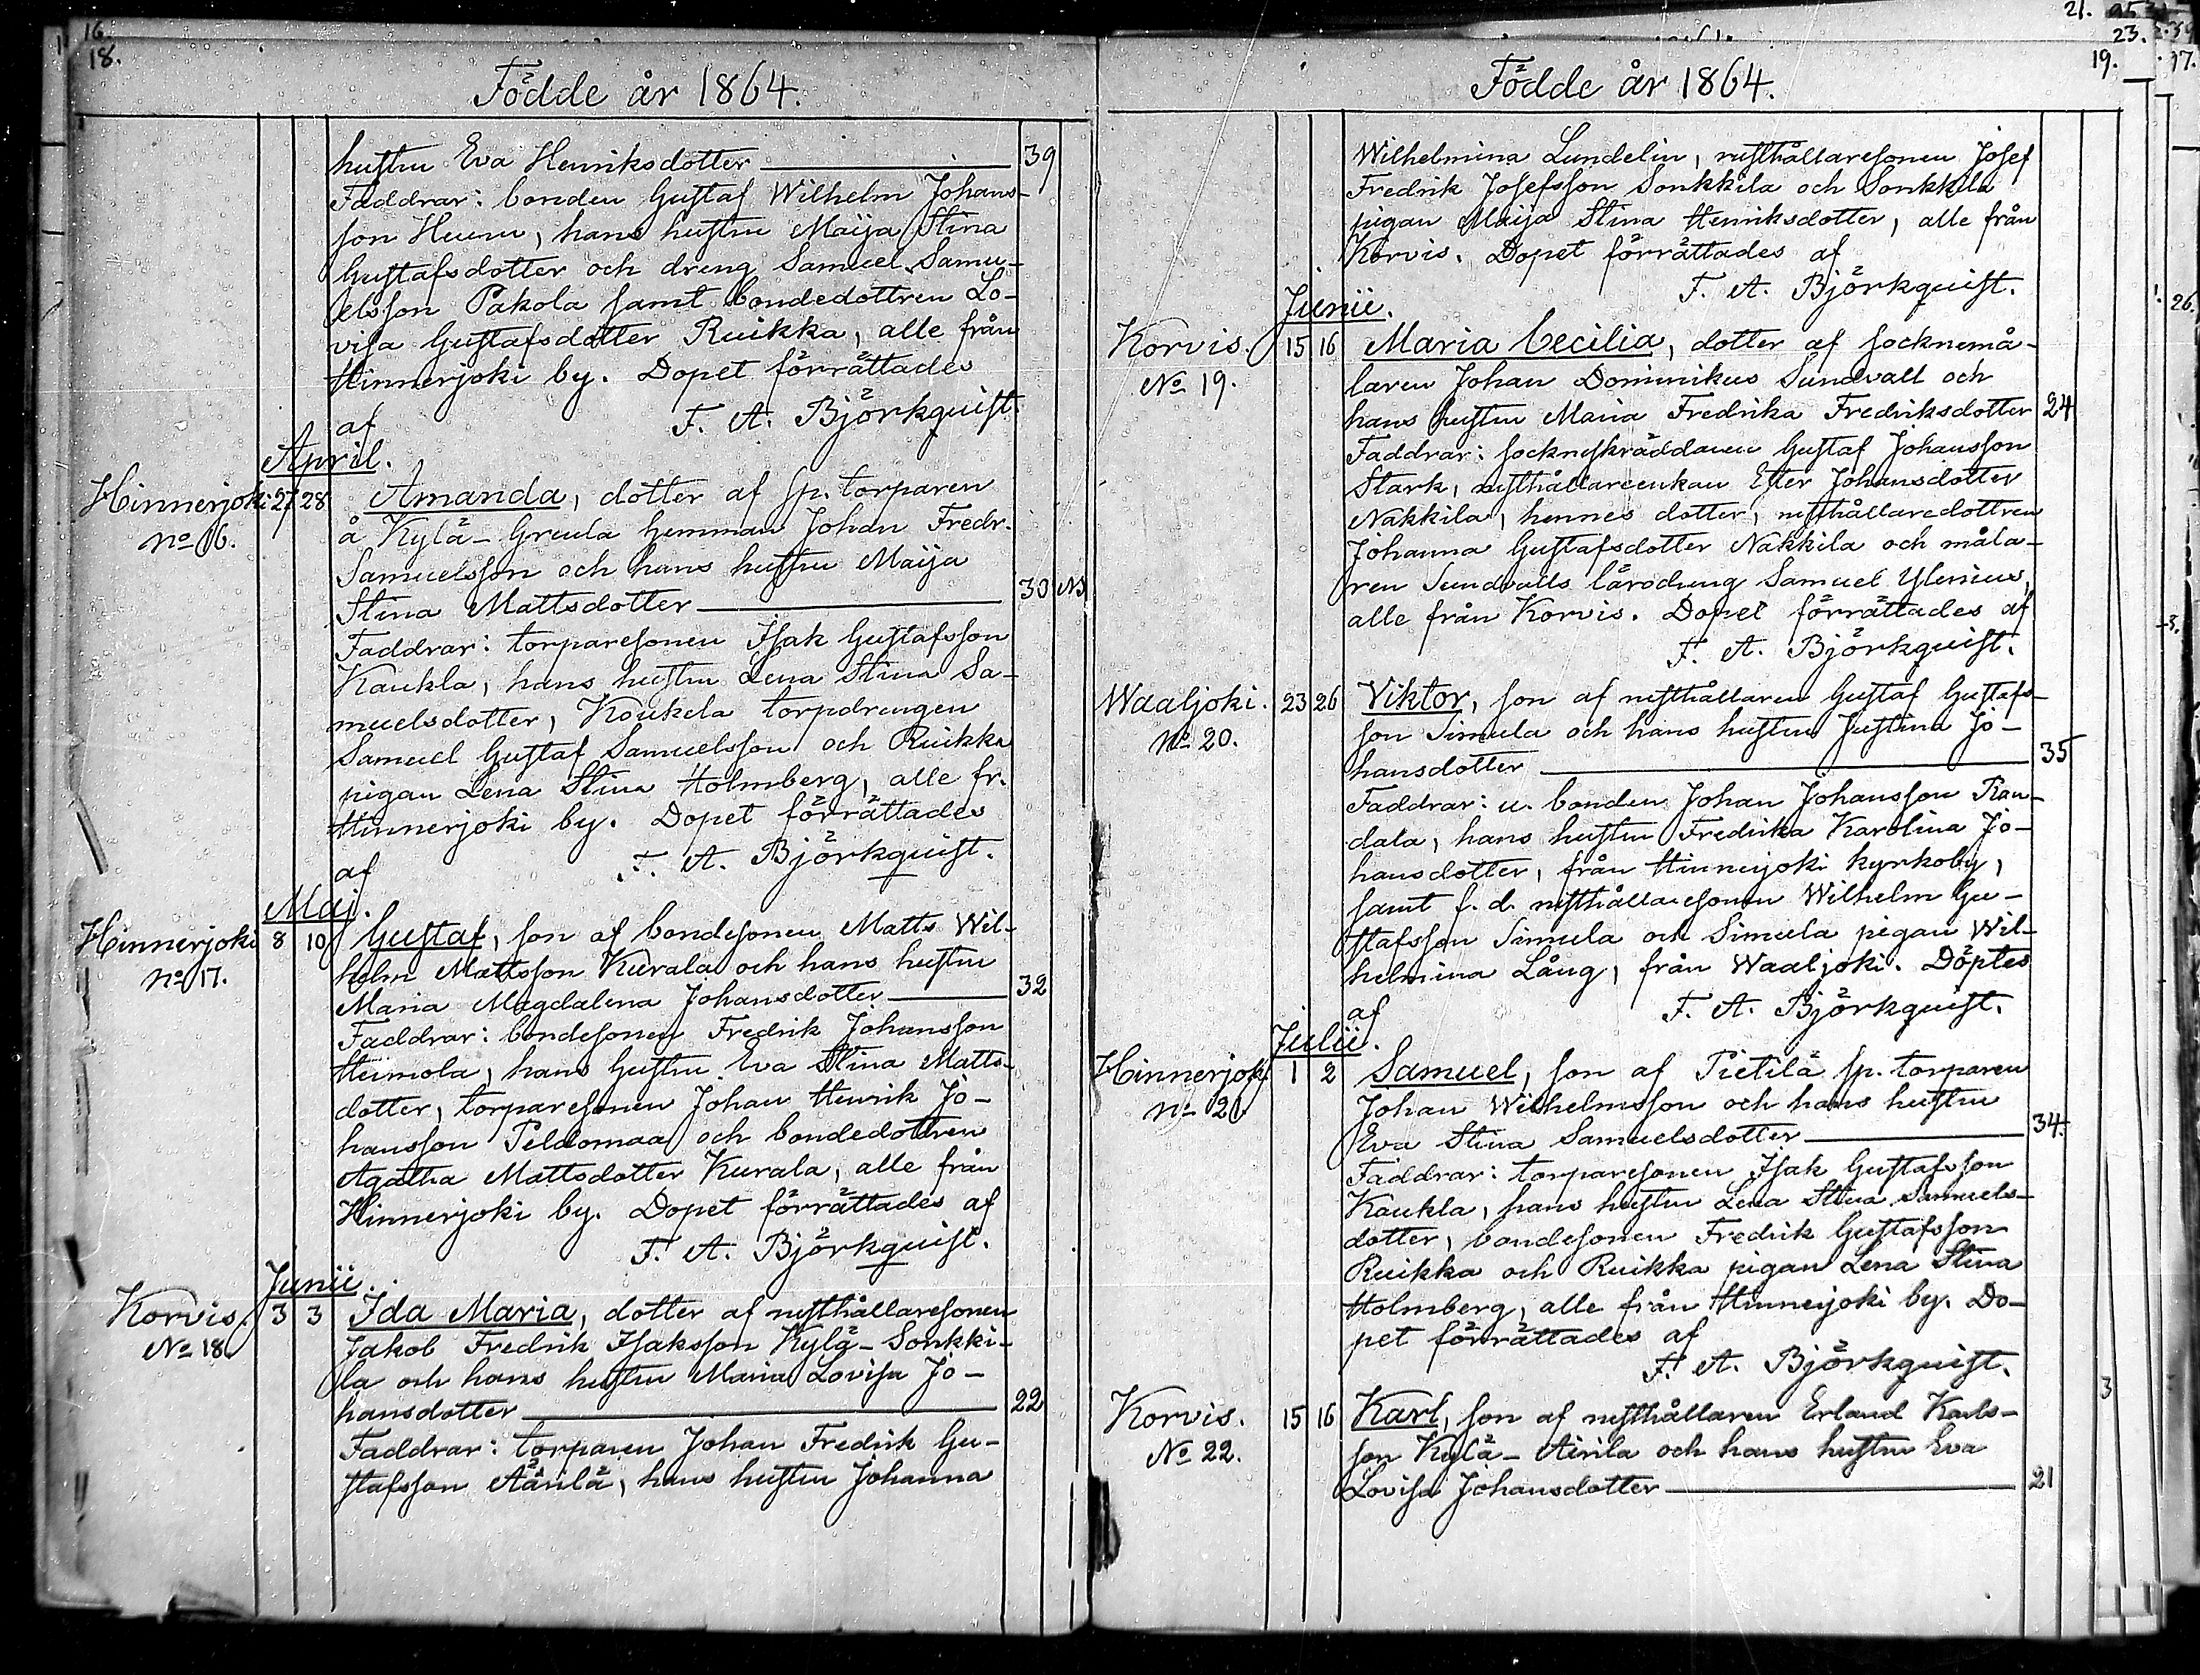 16.
18.
Födde år 1864.
hustru Eva Henriksdotter 39
Faddrar: bonden Gustaf Wilhelm Johans-
son Huuru, hans hustru Maija Stina
Gustafsdotter och dreng Samuel Samu-
elsson Pakola samt bondedottren Lo-
visa Gustafsdotter Ruikka, alle från
Hinnerjoki by. Dopet förrättades
af F. A. Björkquist.
April.
Hinnerjoki 27 28 Amanda, dotter af sp. torparen
No 16. å Kylä-Greula hemman Johan Fredr.
Samuelsson och hans hustru Maija
Stina Mattsdotter 30
Faddrar: torparesonen Isak Gustafsson
Kaukla, hans hustru Lena Stina Sa-
muelsdotter, Koukela torpdrengen
Samuel Gustaf Samuelsson och Ruikka
pigan Lena Stina Holmberg, alle fr.
Hinnerjoki by. Dopet förrättades
af F. A. Björkquist.
Maj.
Hinnerjoki 8 10 Gustaf, son af bondesonen Matts Wil-
No 17. helm Mattsson Kurala och hans hustru
Maria Magdalena Johansdotter 32
Faddrar: bondesonen Fredrik Johansson
Heimola, hans hustru Eva Stina Matts-
dotter, torparesonen Johan Henrik Jo-
hansson Peldomaa och bondedottren
Agatha Mattsdotter Kurala, alle från
Hinnerjoki by. Dopet förrättades af
F. A. Björkquist.
Junii.
Korvis. 3 3 Ida Maria, dotter af rusthållaresonen
No 18. Jakob Fredrik Isaksson Kylä-Sonkki-
la och hans hustru Maria Lovisa Jo-
hansdotter 22
Faddrar: torparen Johan Fredrik Gu-
stafsson Äärilä, hans hustru Johanna
21.
23.
19.
17.
Födde år 1864.
Wilhelmina Lundelin, rusthållaresonen Josef
Fredrik Josefsson Sonkkila och Sonkkila
pigan Maija Stina Henriksdotter, alle från
Korvis. Dopet förrättades af
F. A. Björkquist.
Junii.
Korvis. 15 16 Maria Cecilia, dotter af socknemå-
No 19. laren Johan Dominikus Sundvall och
hans hustru Maria Fredrika Fredriksdotter 24
Faddrar: sockneskräddaren Gustaf Johansson
Stark, rusthållareenkan Ester Johansdotter
Nakkila, hennes dotter, rusthållaredottren
Johanna Gustafsdotter Nakkila och måla-
ren Sundvalls lärodreng Samuel Ylenius,
alle från Korvis. Dopet förrättades af
F. A. Björkquist.
Waaljoki. 23 26 Viktor, son af rusthållaren Gustaf Gustafs-
No 20. son Simula och hans hustru Justina Jo-
hansdotter 35
Faddrar: u. bonden Johan Johansson Ran-
dala, hans hustru Fredrika Karolina Jo-
hansdotter, från Hinnerjoki kyrkoby,
samt f. d. rusthållaresonen Wilhelm Gu-
stafsson Simula och Simula pigan Wil-
helmina Lång, från Waaljoki. Döptes
af F. A. Björkquist.
Julii.
Hinnerjoki 1 2 Samuel, son af Pietilä sp. torparen
No 21. Johan Wilhelmsson och hans hustru
Eva Stina Samuelsdotter 34.
Faddrar: torparesonen Isak Gustafsson
Kaukla, hans hustru Lena Stina Samuels-
dotter, bondesonen Fredrik Gustafsson
Ruikka och Ruikka pigan Lena Stina
Holmberg, alle från Hinnerjoki by. Do-
pet förrättades af
F. A. Björkquist.
3
Korvis. 15 16 Karl, son af rusthållaren Erland Karls-
No 22. son Kylä-Airila och hans hustru Eva
Lovisa Johansdotter 21
26.